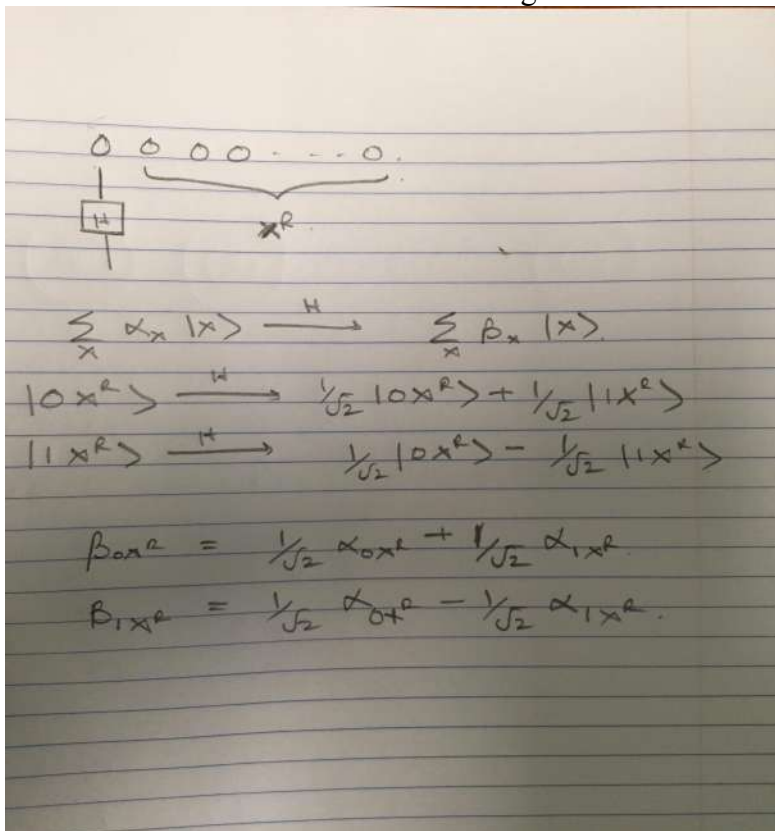 0 0 0 0 - - - 0.
H
x^R.
∑_x α_x |x> —H→ ∑_x β_x |x>.
|0x^R> —H→ 1/√2 |0x^R> + 1/√2 |1x^R>
|1x^R> —H→ 1/√2 |0x^R> - 1/√2 |1x^R>
β_{0x^R} = 1/√2 α_{0x^R} + 1/√2 α_{1x^R}.
β_{1x^R} = 1/√2 α_{0x^R} - 1/√2 α_{1x^R}.